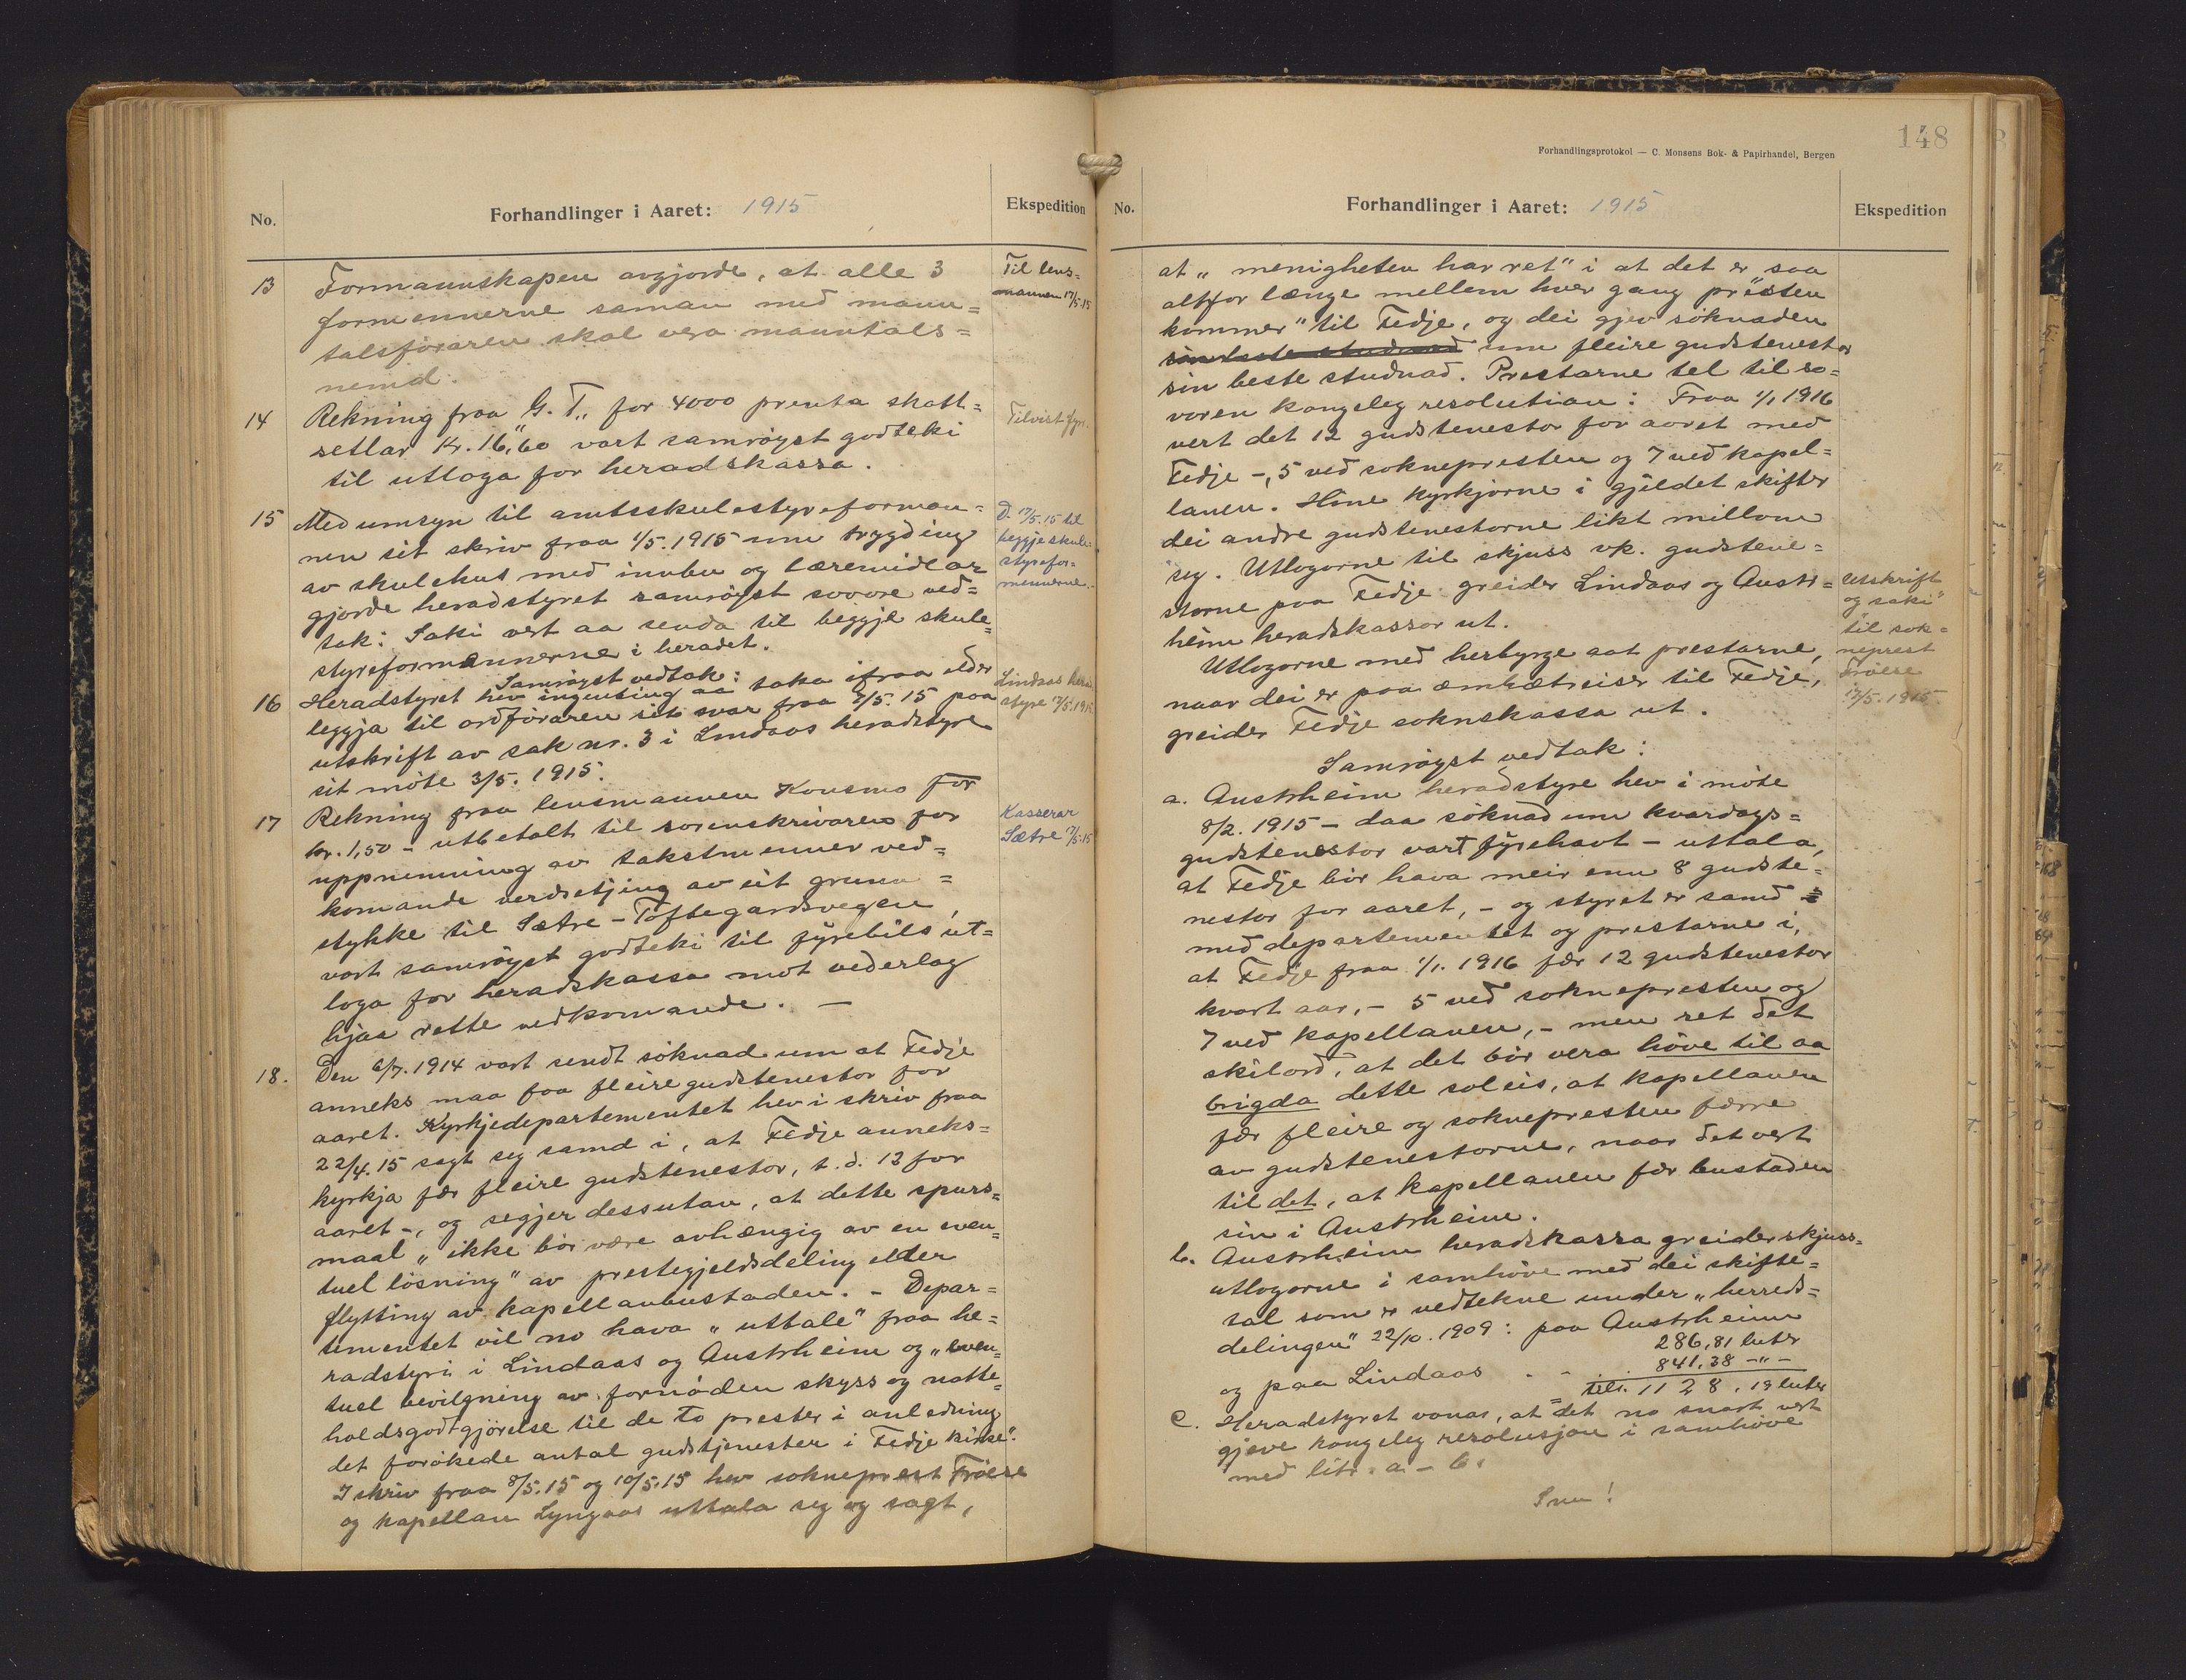 No.
Forhandlinger i Aaret: 1915
Ekspedition
13 Formannskapen avgjorde, at alle 3
formennerne saman med mann=
talsföraren skal vera manntals=
nemd.
Til lens=
mannen 17/5.15
14 Rekning fraa "G. T.„ for 4000 prenta skatt=
setlar Kr. 16,60 vart samröyst godteki
til utloga for heradskassa.
Tilvist fyr.
15 Med umsyn til amtsskulestyreforman=
nen sit skriv fraa 1/5.1915 um trygding
av skulehus med innbu og læremidlar
gjorde heradstyret samröyst sovore ved=
tak: Saki vert aa senda til beggje skule=
styreformænnerne i heradet.
D. 17/5.15 til
beggje skule=
styrefor=
mennerne.
Samröyst vedtak:
16 Heradstyret hev ingenting aa taka ifraa elder
leggja til ordföraren sit svar fraa 7/5.15 paa
utskrift av sak nr. 3 i Lindaas heradstyre
sit möte 3/5. 1915.
Lindaas herad
styre 17/5.1915
17 Rekning fraa lensmannen Konsmo for
kr. 1,50 - utbetalt til sorenskrivaren for
uppnemning av takstmenner ved=
komande verdsetjing av eit grunn=
stykke til Sætre - Toftegardsvegen,
vart samröyst godteki til fyrebils ut=
loga for heradskassa mot vederlag
hjaa rette vedkomande. —
Kasserar
Sætre 17/5.15
18. Den 6/7.1914 vart sendt söknad um at Fedje
anneks maa faa fleire gudstenestor for
aaret. Kyrkjedepartementet hev i skriv fraa
22/4.15 sagt seg samd i, at Fedje anneks=
kyrkja fær fleire gudstenestor, t. d. 12 for
aaret -, og segjer dessutan, at dette spurs=
maal „ikke bör være avhængig av en even=
tuel lösning" av prestegjeldsdeling elder
flytting av kapellanbustaden. - Depar=
tementet vil no hava „uttale" fraa he=
radstyri i Lindaas og Austrheim og „even=
tuel bevilgning av fornöden skyss og natte=
holdsgodtgjörelse til de to prester i anledning
det forökede antal gudstjenester i Fedje kirke".
I skriv fraa 8/5.15 og 10/5.15 hev sokneprest Fröese
og kapellan Lyngaas uttala seg og sagt,
148
Forhandlingsprotokol — C. Monsens Bok- & Papirhandel, Bergen
No.
Forhandlinger i Aaret: 1915
Ekspedition
at „menigheten har ret" i at det er „saa
altfor længe mellem hver gang presten
kommer" til Fedje, og dei gjev söknaden
sin beste studnad um fleire gudstenestor
sin beste studnad. Prestarne tel til so=
voren kongeleg resolution: Fraa 1/1 1916
vert det 12 gudstenestor for aaret med
Fedje -, 5 ved soknepresten og 7 ved kapel=
lanen. Hine kyrkjorne i gjeldet skifter
dei andre gudstenestorne likt millom
seg. Utlogorne til skjuss vp. gudstene=
storne paa Fedje greider Lindaas og Austr=
heim heradskassor ut.
Utlogorne med herbyrge aat prestarne,
naar dei er paa embætreiser til Fedje,
greider Fedje soknskassa ut.
Utskrift
og „saki"
til sok=
neprest
Fröese
17/5.1915.
Samröyst vedtak:
a. Austrheim heradstyre hev i möte
8/2. 1915 - daa söknad um kvardags=
gudstenestor vart fyrehavt - uttala,
at Fedje bör hava meir enn 8 gudste=
nestor for aaret, - og styret er samd
med departementet og prestarne i,
at Fedje fraa 1/1. 1916 fær 12 gudstenestor
kvart aar, - 5 ved soknepresten og
7 ved kapellanen, - men set det
skilord, at det bör vera höve til aa
brigda dette soleis, at kapellanen
fær fleire og soknepresten færre
av gudstenestorne, naar det vert
til det, at kapellanen fær bustaden
sin i Austrheim.
b. Austrheim heradskassa greider skjuss=
utlogorne i samhöve med dei skifte=
tal som er vedtekne under „herreds=
delingen" 22/10. 1909: paa Austrheim
286,81 luter
og paa Lindaas . . . 841,38 -"-
tils. 1128,19 luter
c. Heradstyret vonar, at det no snart vert
gjeve kongeleg resolusjon i samhöve
med litr. a - b.
Snu!